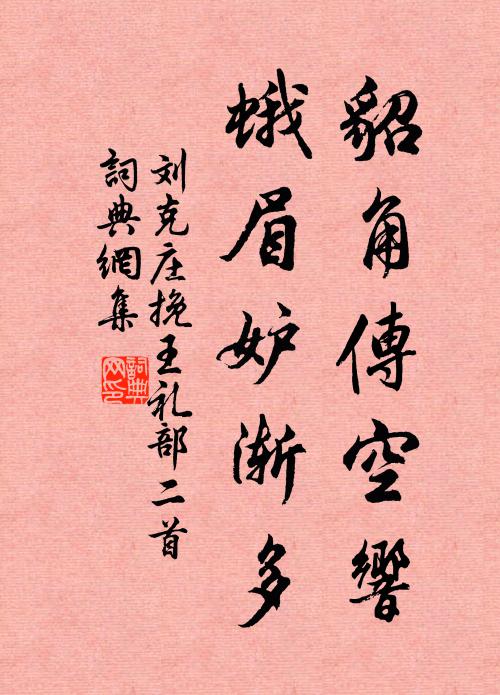 貂角傳空響
蛾眉妒渐多
刘克庄挽王礼部二首
詞典網集
詞典网印